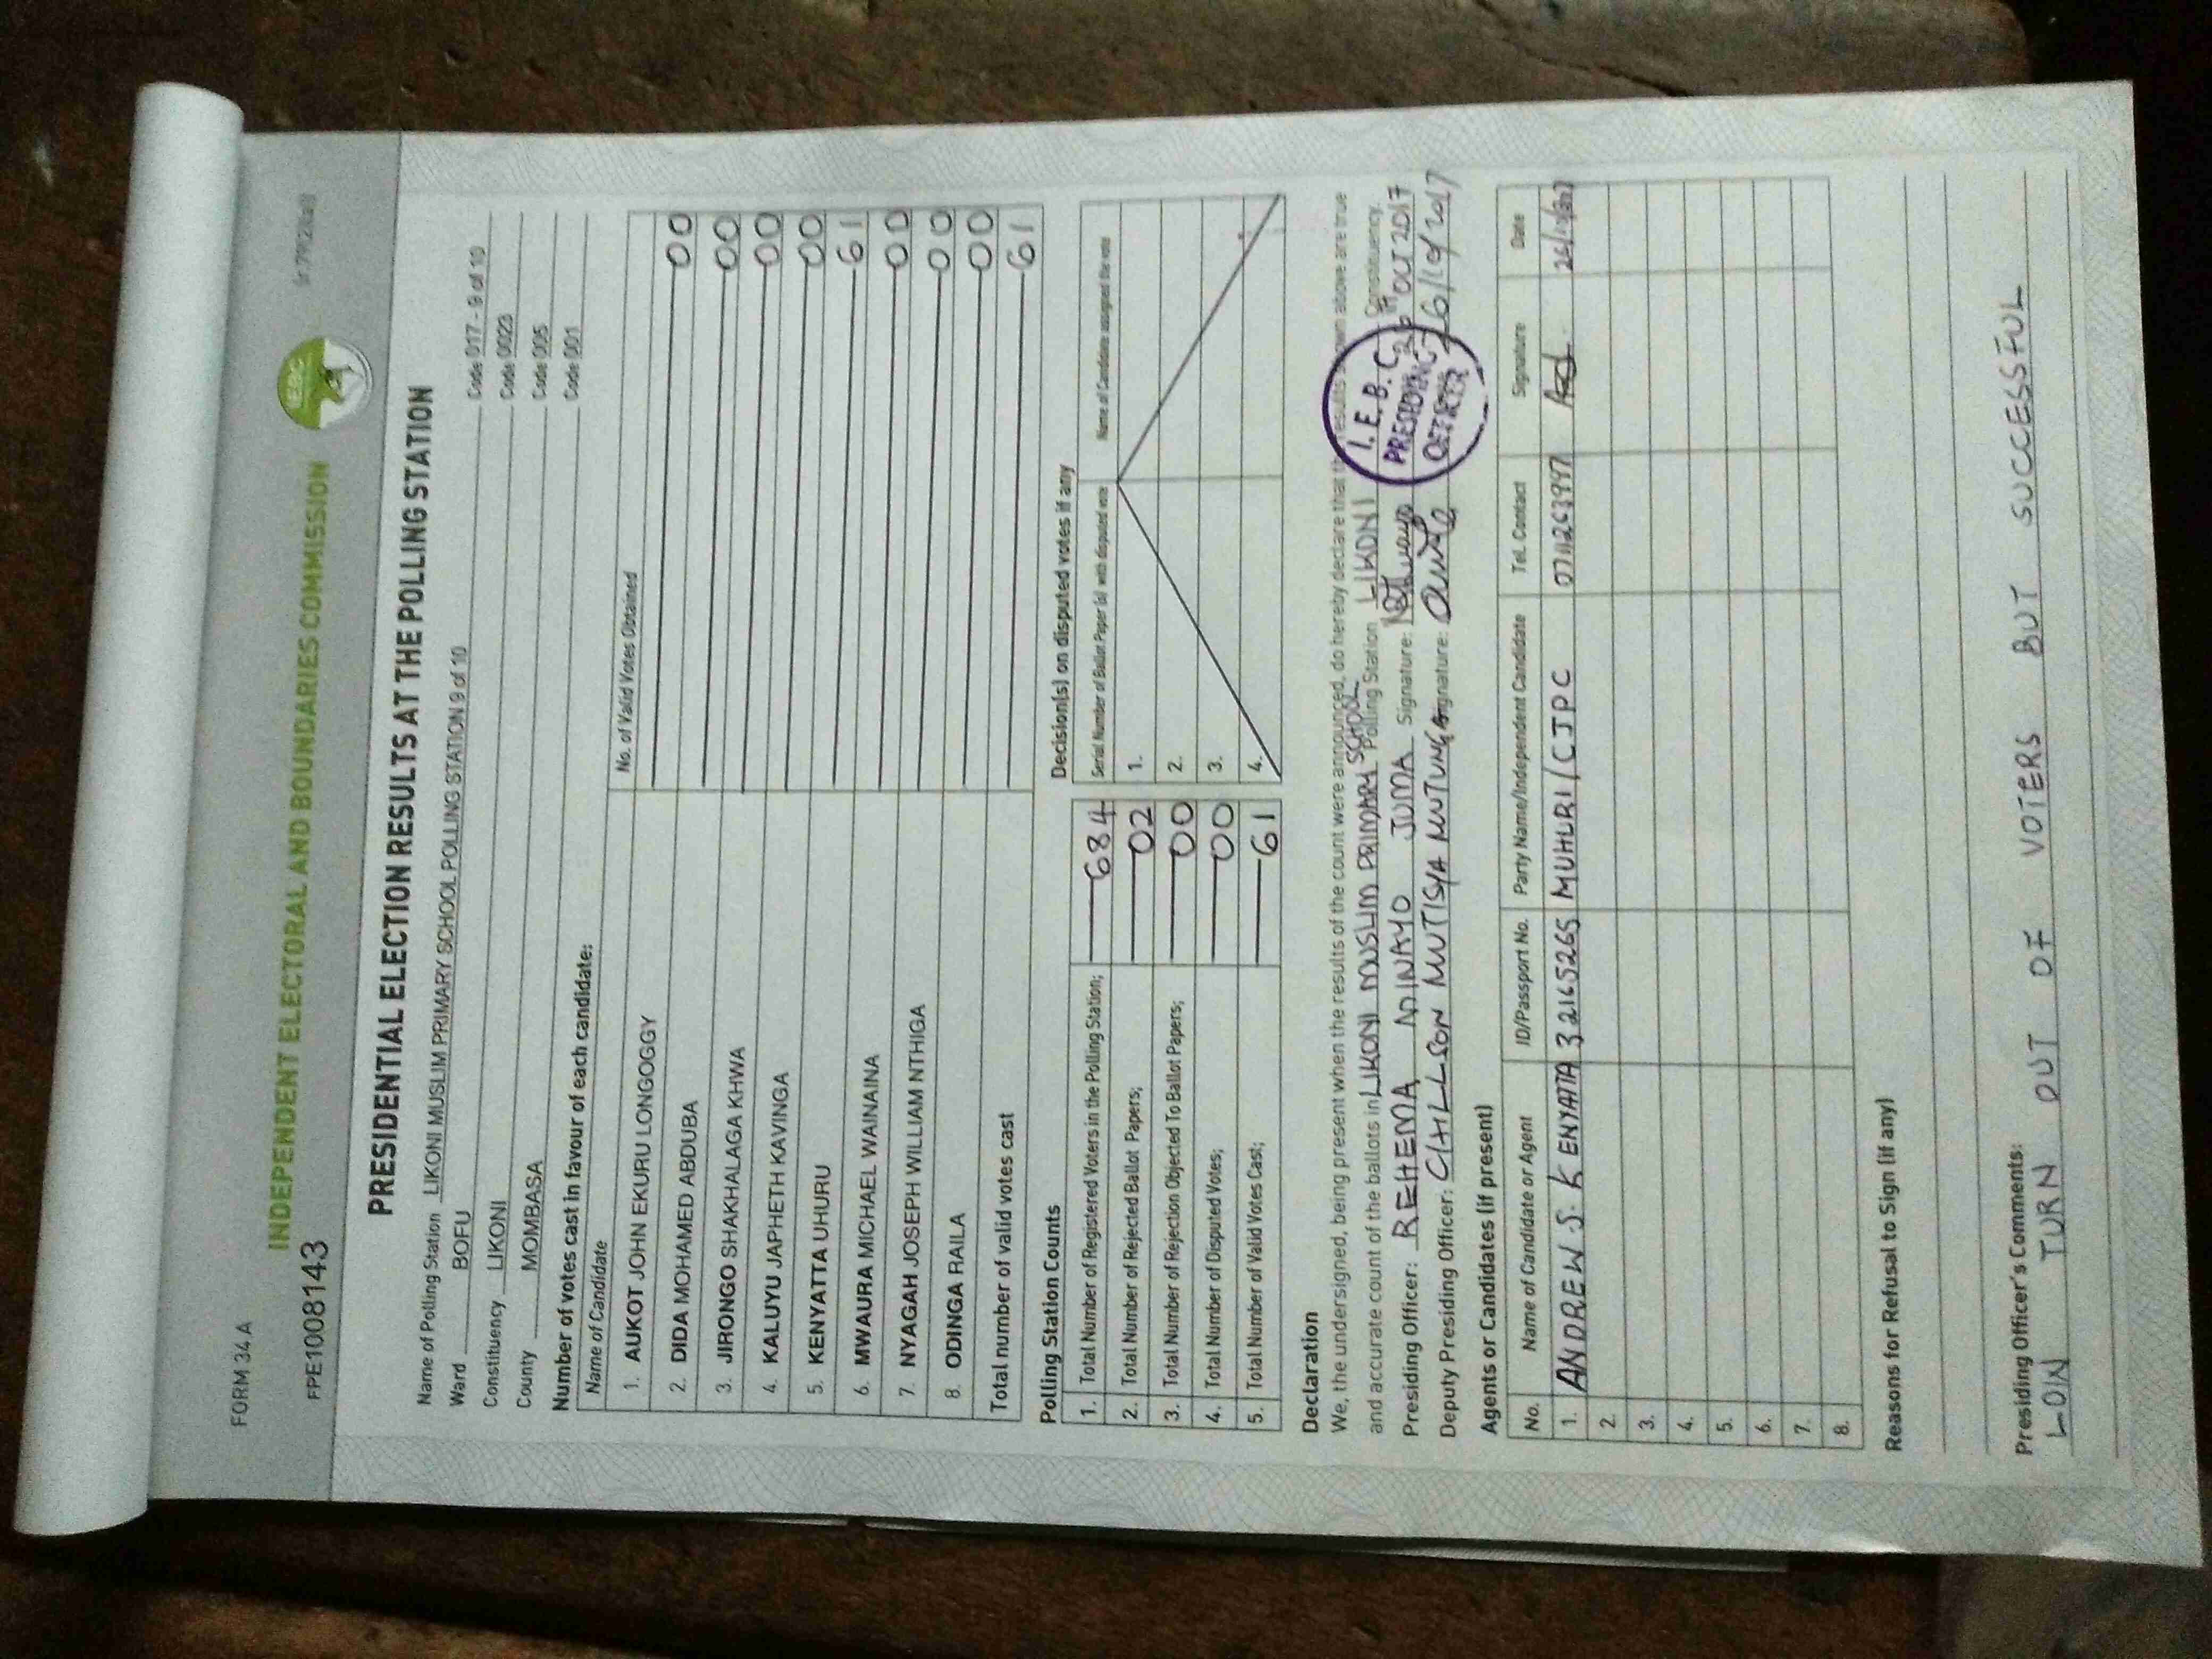 FORM 34 A
INDEPENDENT ELECTORAL AND BOUNDARIES COMMISSION
FPE1008143
IEBC
PRESIDENTIAL ELECTION RESULTS AT THE POLLING STATION
Name of Polling Station LIKONI MUSLIM PRIMARY SCHOOL POLLING STATION 9 of 10 Code 017 - 9 of 10
Ward BOFU Code 0023
Constituency LIKONI Code 005
County MOMBASA Code 001
Number of votes cast in favour of each candidate:
Name of Candidate No. of Valid Votes Obtained
1. AUKOT JOHN EKURU LONGOGGY 00
2. DIDA MOHAMED ABDUBA 00
3. JIRONGO SHAKHALAGA KHWA 00
4. KALUYU JAPHETH KAVINGA 00
5. KENYATTA UHURU 61
6. MWAURA MICHAEL WAINAINA 00
7. NYAGAH JOSEPH WILLIAM NTHIGA 00
8. ODINGA RAILA 00
Total number of valid votes cast 61
Polling Station Counts
1. Total Number of Registered Voters in the Polling Station; 684
2. Total Number of Rejected Ballot Papers; 02
3. Total Number of Rejection Objected To Ballot Papers; 00
4. Total Number of Disputed Votes; 00
5. Total Number of Valid Votes Cast; 61
Decision(s) on disputed votes if any
Serial Number of Ballot Paper (s) with disputed vote Name of Candidate assigned the vote
1.
2.
3.
4.
Declaration
We, the undersigned, being present when the results of the count were announced, do hereby declare that the results shown above are true
and accurate count of the ballots in LIKONI MUSLIM PRIMARY SCHOOL Polling Station LIKONI Constituency.
Presiding Officer: REHEMA AMINAYO JUMA Signature: 26TH OCT 2017
Deputy Presiding Officer: CHILLSON MUTISYA MUTUNGA Signature: 26/10/2017
I.E.B.C
PRESIDING
OFFICER
Agents or Candidates (if present)
No. Name of Candidate or Agent ID/Passport No. Party Name/Independent Candidate Tel. Contact Signature Date
1. ANDREW S. KENYATA 32165265 MUHURI/CJPC 0711263997 26/10/2017
2.
3.
4.
5.
6.
7.
8.
Reasons for Refusal to Sign (if any)
Presiding Officer's Comments:
LOW TURN OUT OF VOTERS BUT SUCCESSFUL